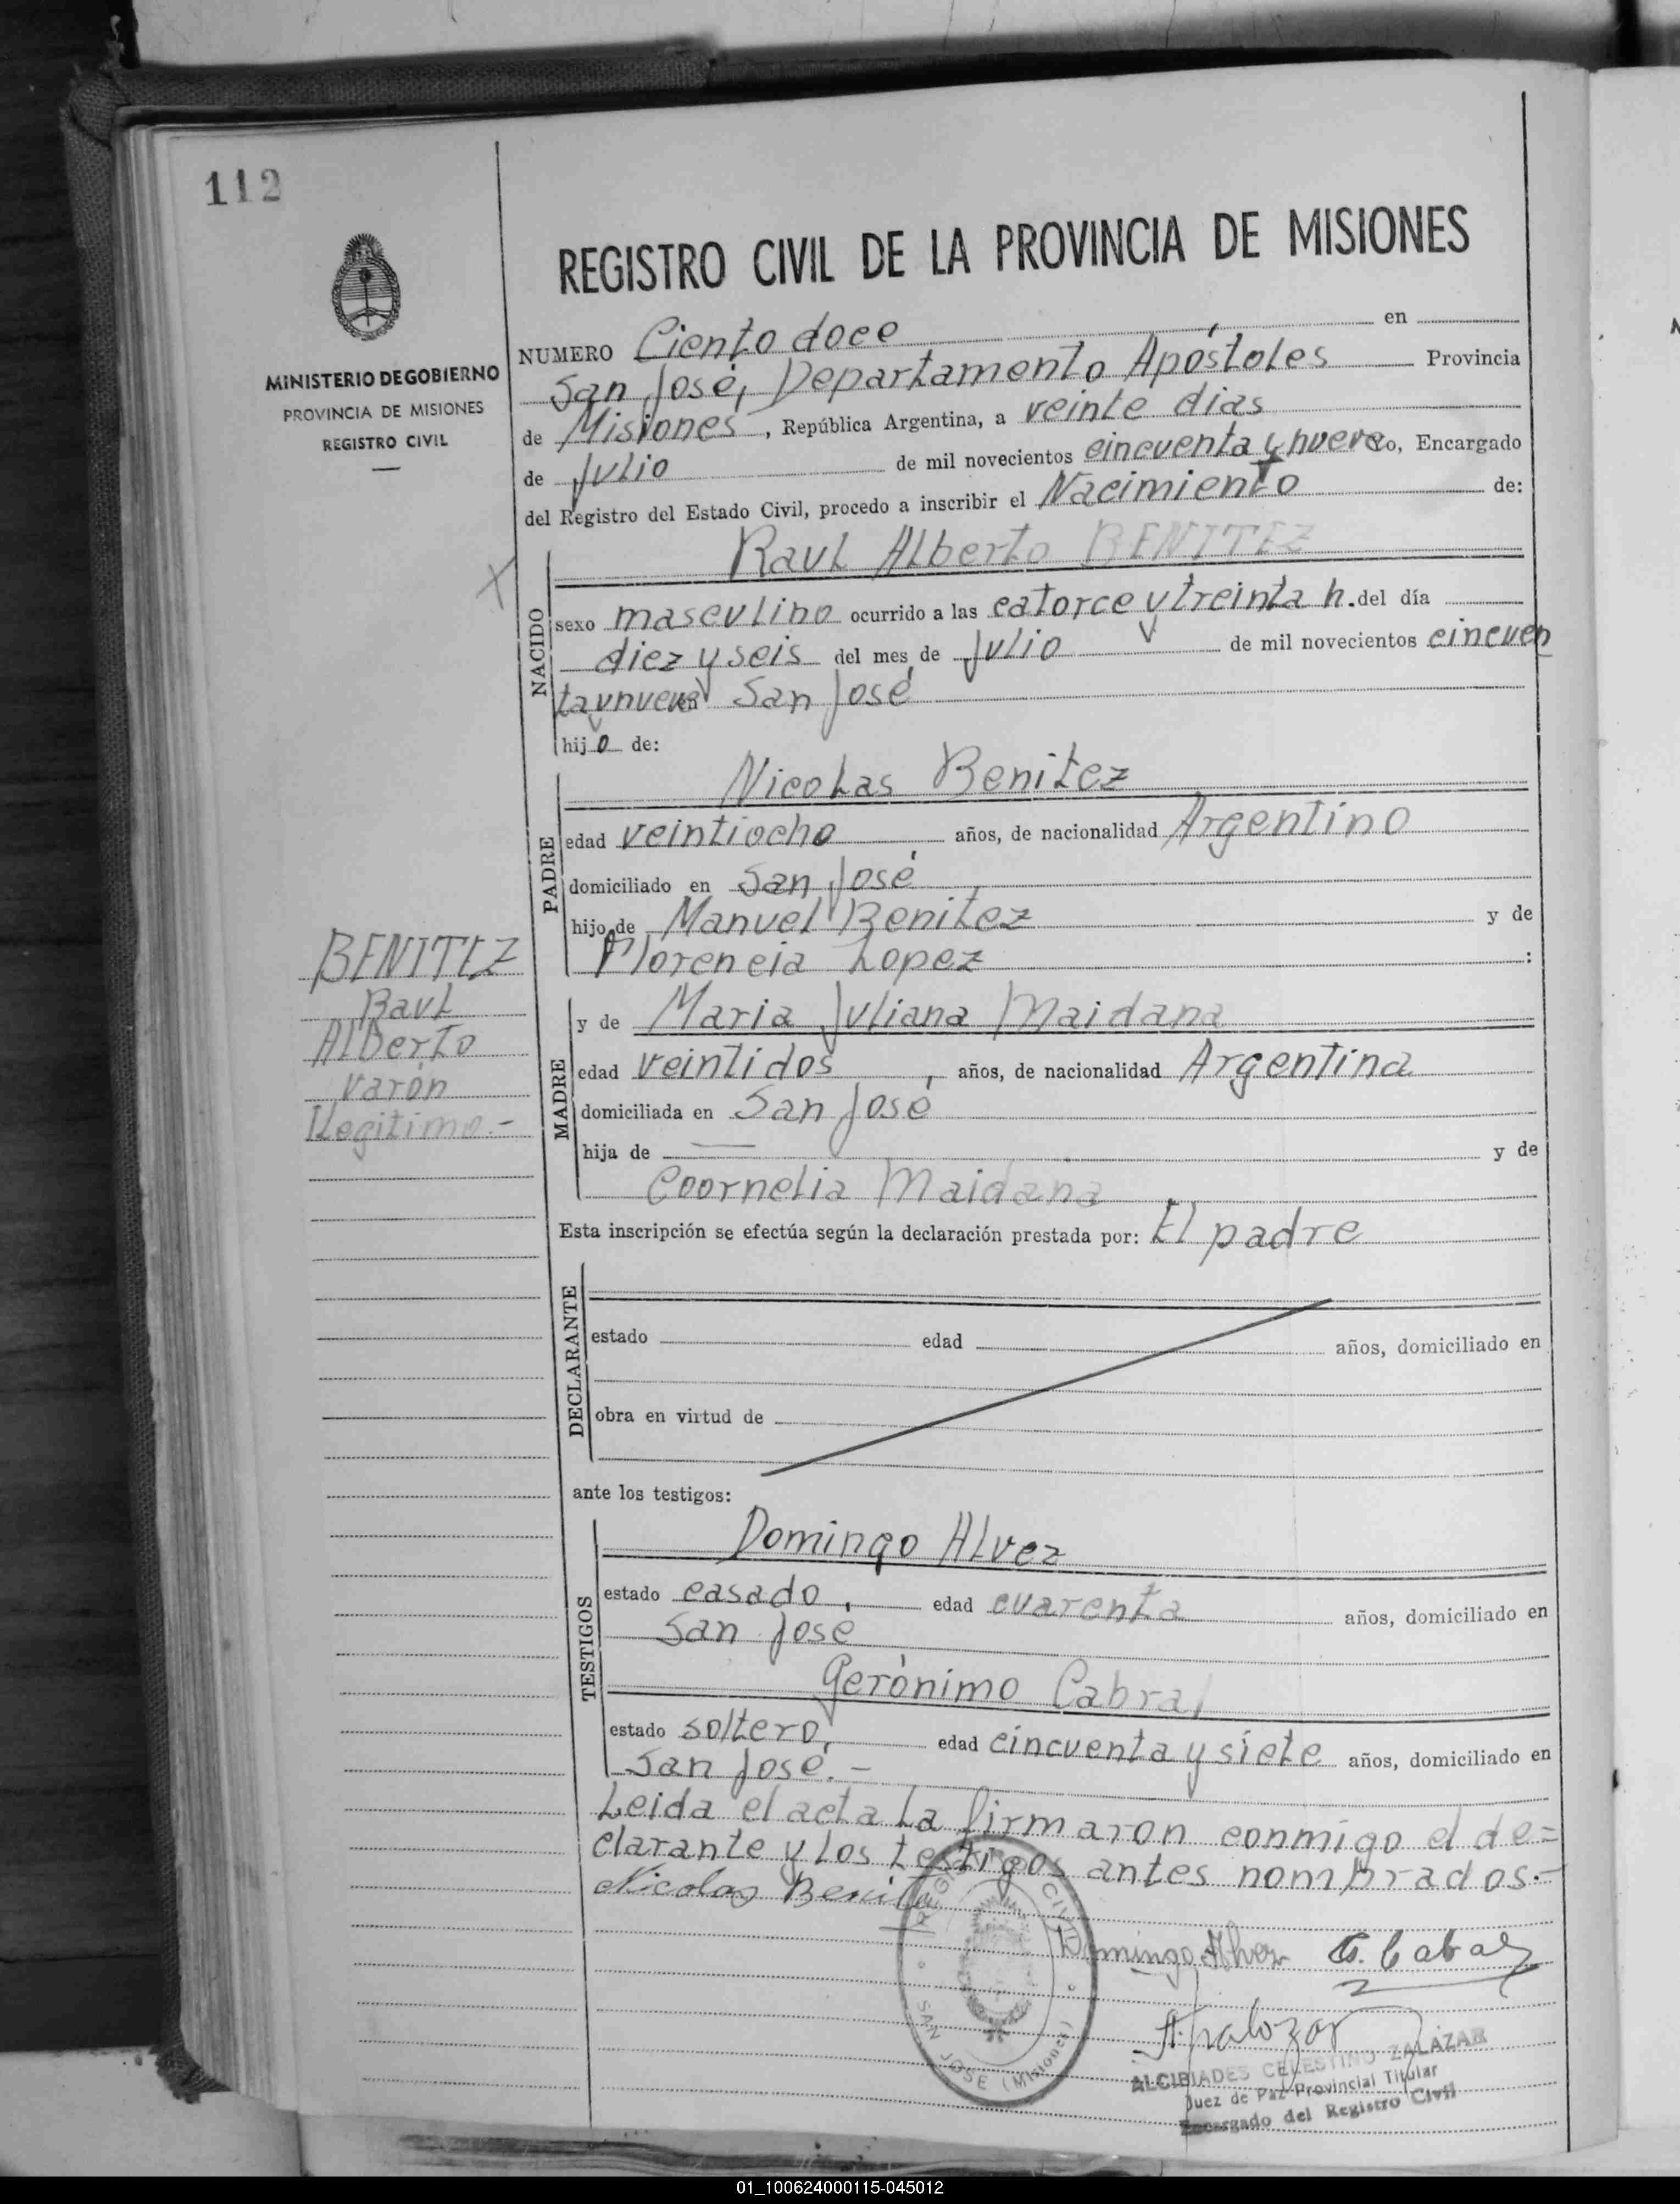 112
REGISTRO CIVIL DE LA PROVINCIA DE MISIONES
MINISTERIO DE GOBIERNO
PROVINCIA DE MISIONES
REGISTRO CIVIL
NUMERO Ciento doce en
San José, Departamento Apóstoles Provincia
de Misiones, República Argentina, a veinte dias
de Julio de mil novecientos cincuenta y nueve yo, Encargado
del Registro del Estado Civil, procedo a inscribir el Nacimiento de:
NACIDO
Raul Alberto BENITEZ
sexo masculino ocurrido a las catorce y treinta h. del día
diez y seis del mes de Julio de mil novecientos cincuen
ta y nueve en San José
hijo de:
PADRE
Nicolas Benitez
edad veintiocho años, de nacionalidad Argentino
domiciliado en San José
hijo de Manuel Benitez y de
Florencia Lopez :
BENITEZ
Raul
Alberto
varón
Ilegitimo.-
MADRE
y de Maria Juliana Maidana
edad veintidos, años, de nacionalidad Argentina
domiciliada en San José
hija de — y de
Coornelia Maidana
Esta inscripción se efectúa según la declaración prestada por: El padre
DECLARANTE
estado edad años, domiciliado en
obra en virtud de
ante los testigos:
TESTIGOS
Domingo Alvez
estado casado, edad cuarenta años, domiciliado en
San José
Gerónimo Cabral
estado soltero, edad cincuenta y siete años, domiciliado en
San José.-
Leida el acta la firmaron conmigo el de=
clarante y los testigos antes nombrados.-
Nicolas Benitez
REGISTRO CIVIL
SAN JOSE (Misiones)
Domingo Alvez G. Cabral
A. Zalazar
ALCIBIADES CELESTINO ZALAZAR
Juez de Paz Provincial Titular
Encargado del Registro Civil
01_100624000115-045012